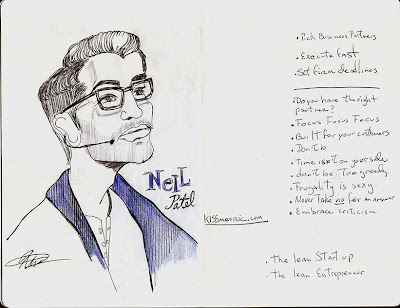 NEIL
Patel
KISSmetric.com
• Pick Business Partners
• Execute fast
• Set firm deadlines
• Do you have the right
partner?
• Focus Focus Focus
• Built for your customers
• Don't b
• Time isn't on your side
• don't be Too greedy
• Frugality is sexy.
• Never take no for an answer
• Embrace criticism.
• The lean Start up
• the lean Entrepreneur